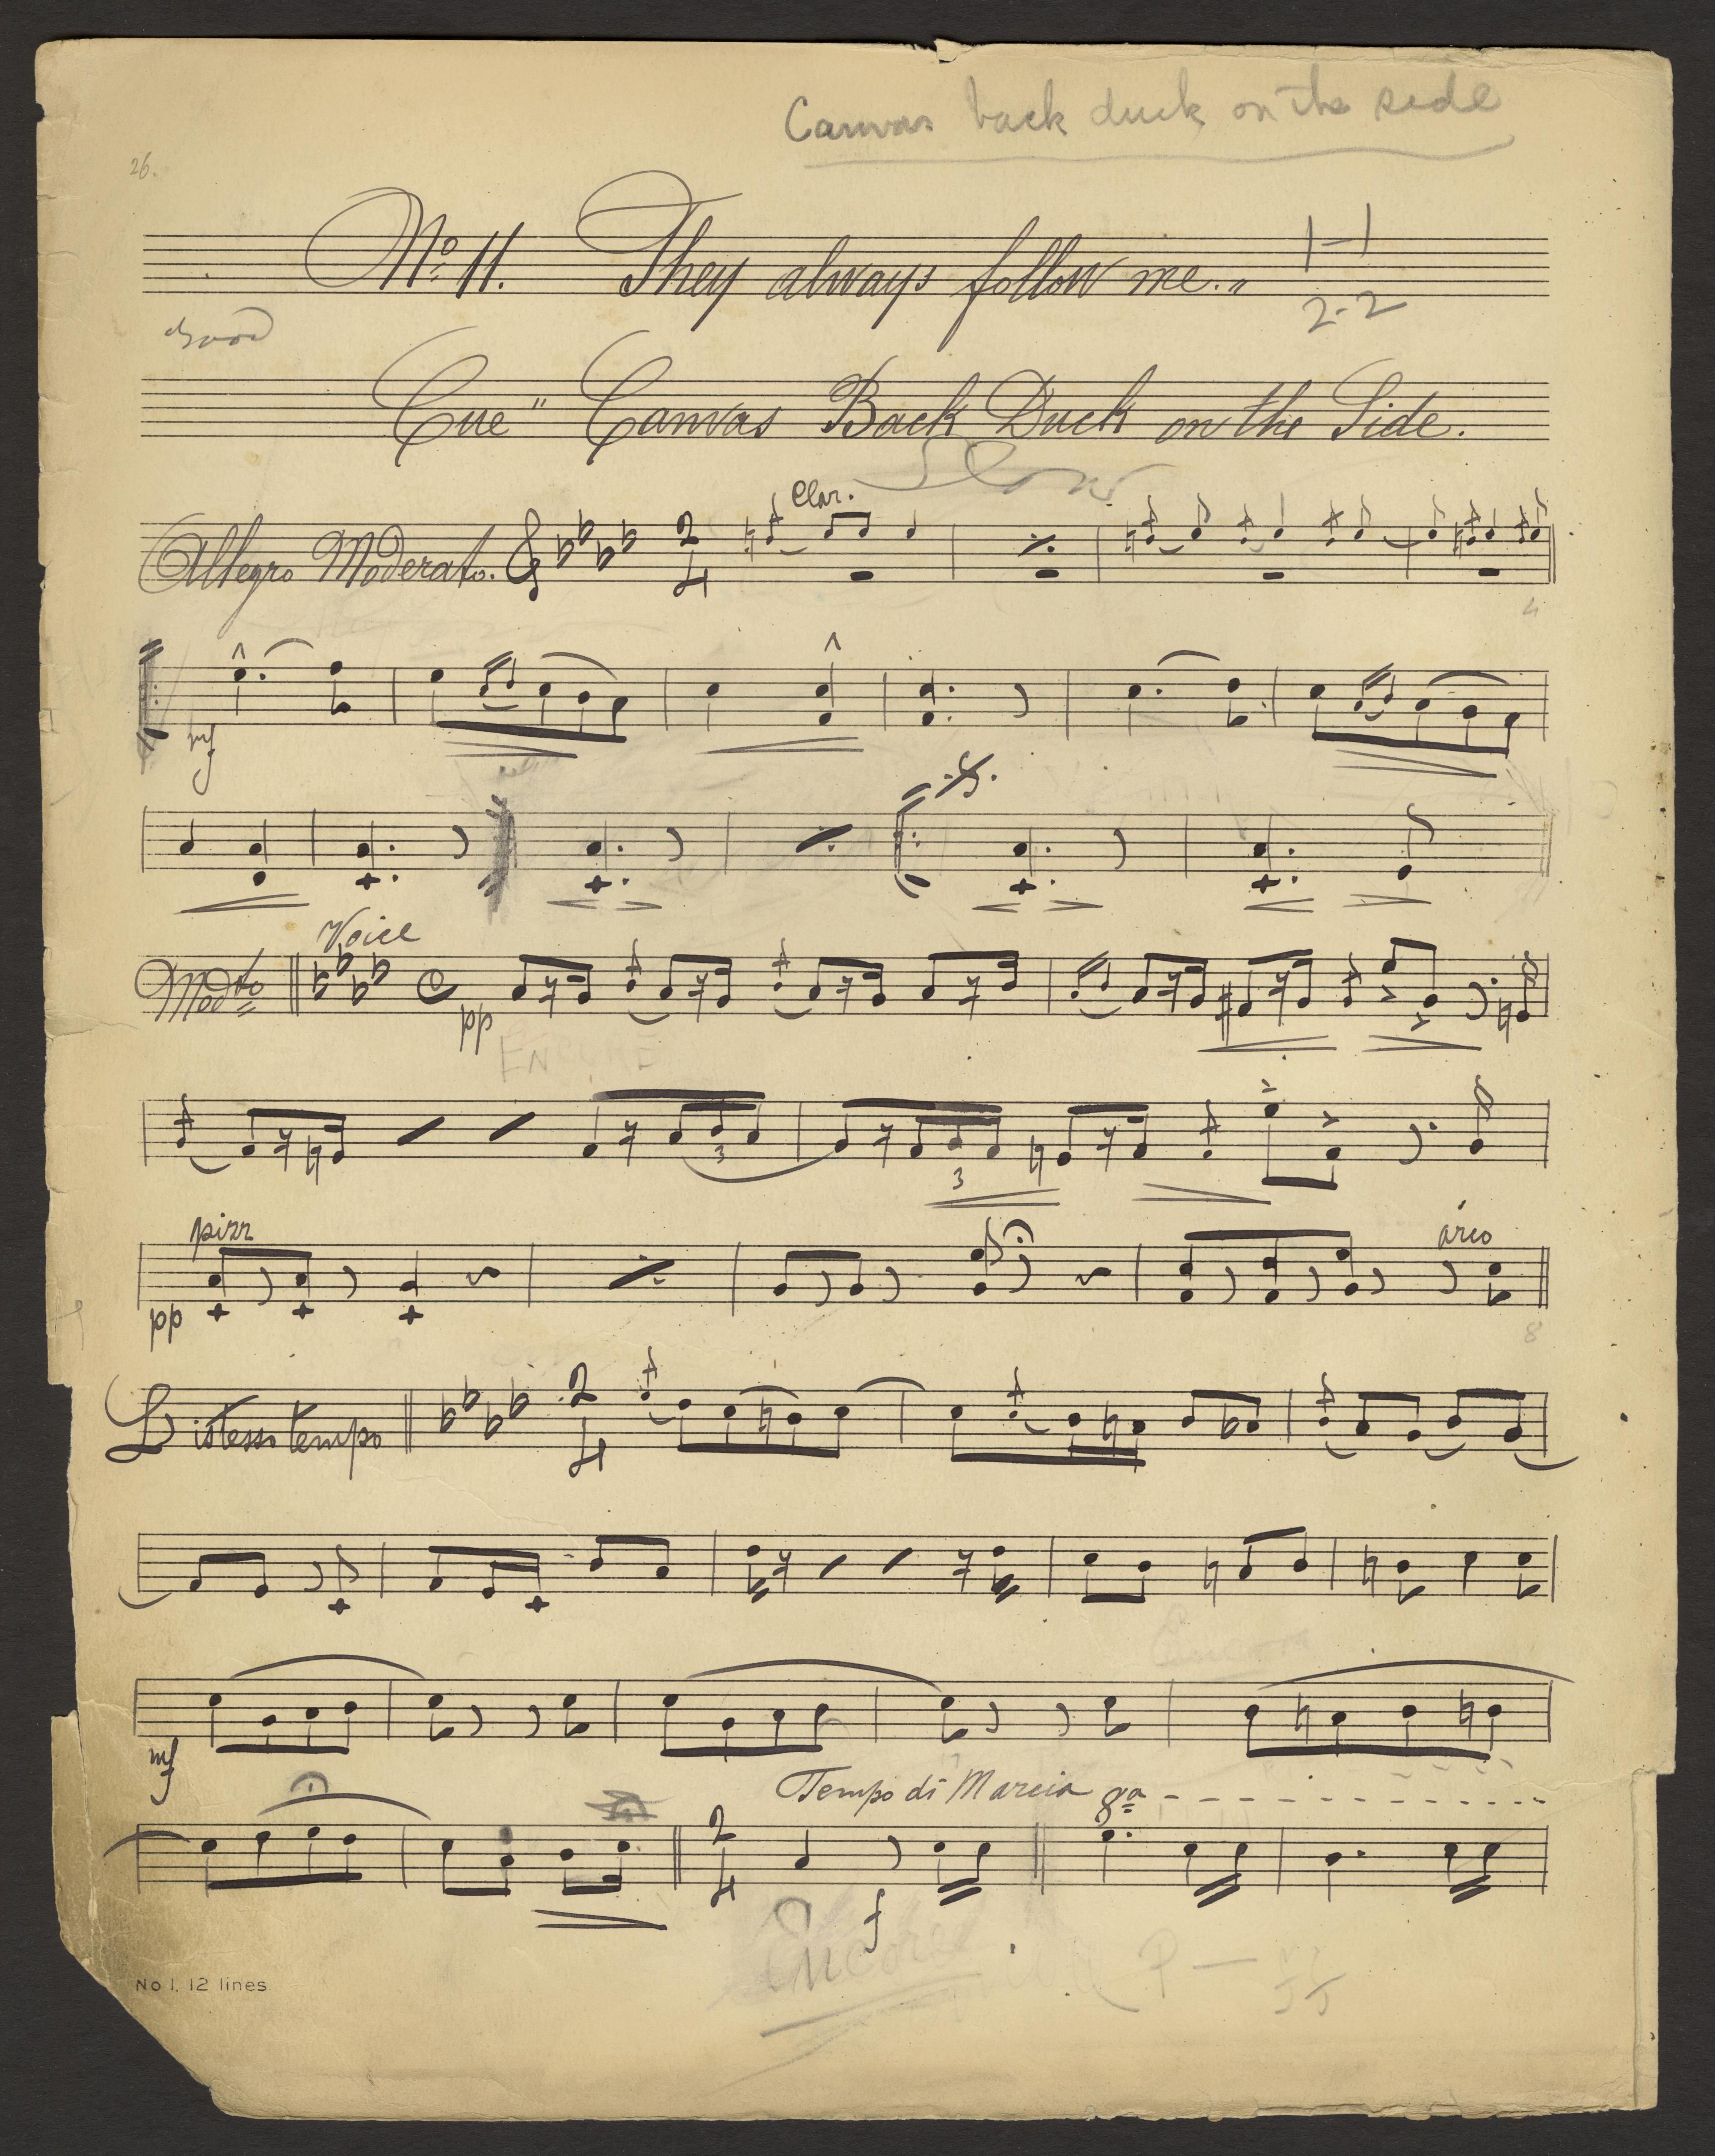 Canvas back duck on the side
26.
No 11. They always follow me."
1-1
2-2
Cue" Canvas Back Duck on the Side.
Slow
Clar.
Allegro Moderato. 2 4
4
mf
Voice
Modto pp
ENCORE
3
3
pizz arco
pp
8
L'istesso tempo 2 4
Encore
mf
Tempo di Marcia 8va
2 4
f
Encore
P —
No 1, 12 lines